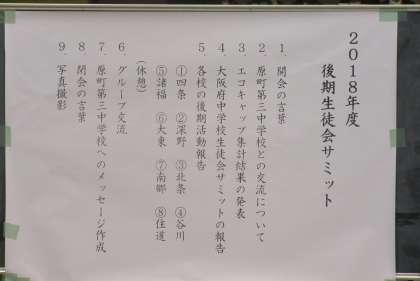 2018年度
後期生徒会サミット
1．開会の言葉
2．原町第三中学校との交流について
3　エコキャップ集計結果の発表
4．大阪府中学校生徒会サミットの報告
5．各校の後期活動報告
①四条　②深野　③北条　④谷川
⑤諸福　⑥大東　⑦南郷　⑧住道
(休憩)
6．グループ交流
7．原町第三中学校へのメッセージ作成
8．閉会の言葉
9．写真撮影